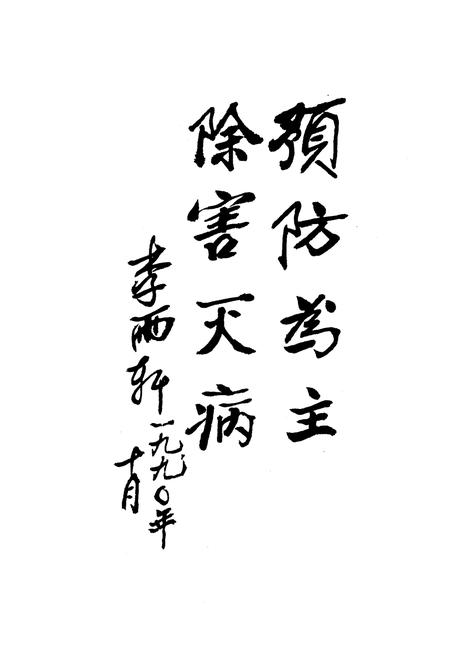 預防為主
除害灭病
李轩
一九九〇年
十月